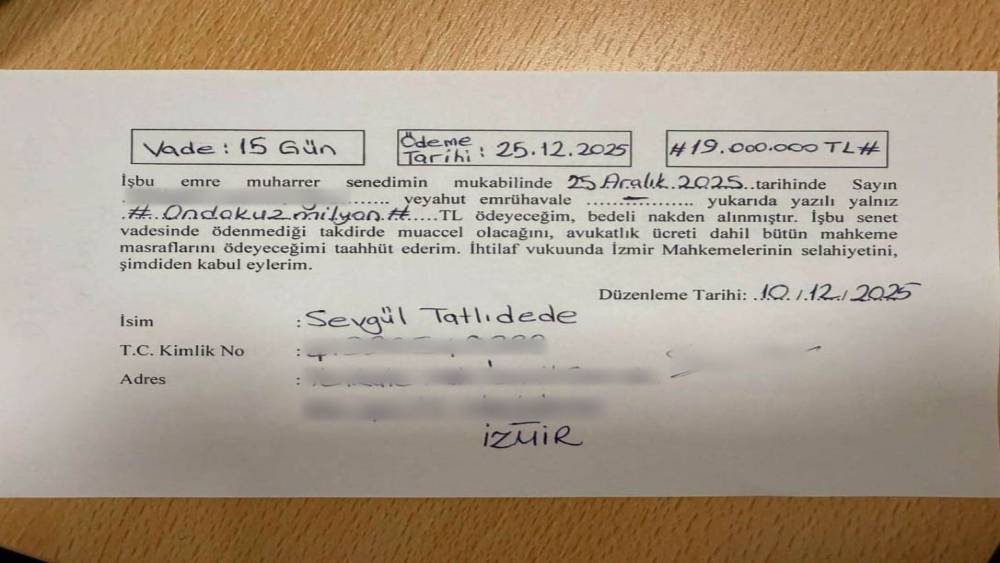 Vade : 15 Gün
Ödeme Tarihi : 25.12.2025
#19.000.000 TL#
İşbu emre muharrer senedimin mukabilinde 25 Aralık 2025..tarihinde Sayın
....... veyahut emrühavale ......–......... yukarıda yazılı yalnız
.#.Ondokuzmilyon.#.....TL ödeyeceğim, bedeli nakden alınmıştır. İşbu senet
vadesinde ödenmediği takdirde muaccel olacağını, avukatlık ücreti dahil bütün mahkeme
masraflarını ödeyeceğimi taahhüt ederim. İhtilaf vukuunda İzmir Mahkemelerinin selahiyetini,
şimdiden kabul eylerim.
Düzenleme Tarihi: .10./.12../.2025
İsim : Sevgül Tatlıdede
T.C. Kimlik No :
Adres :
İZMİR